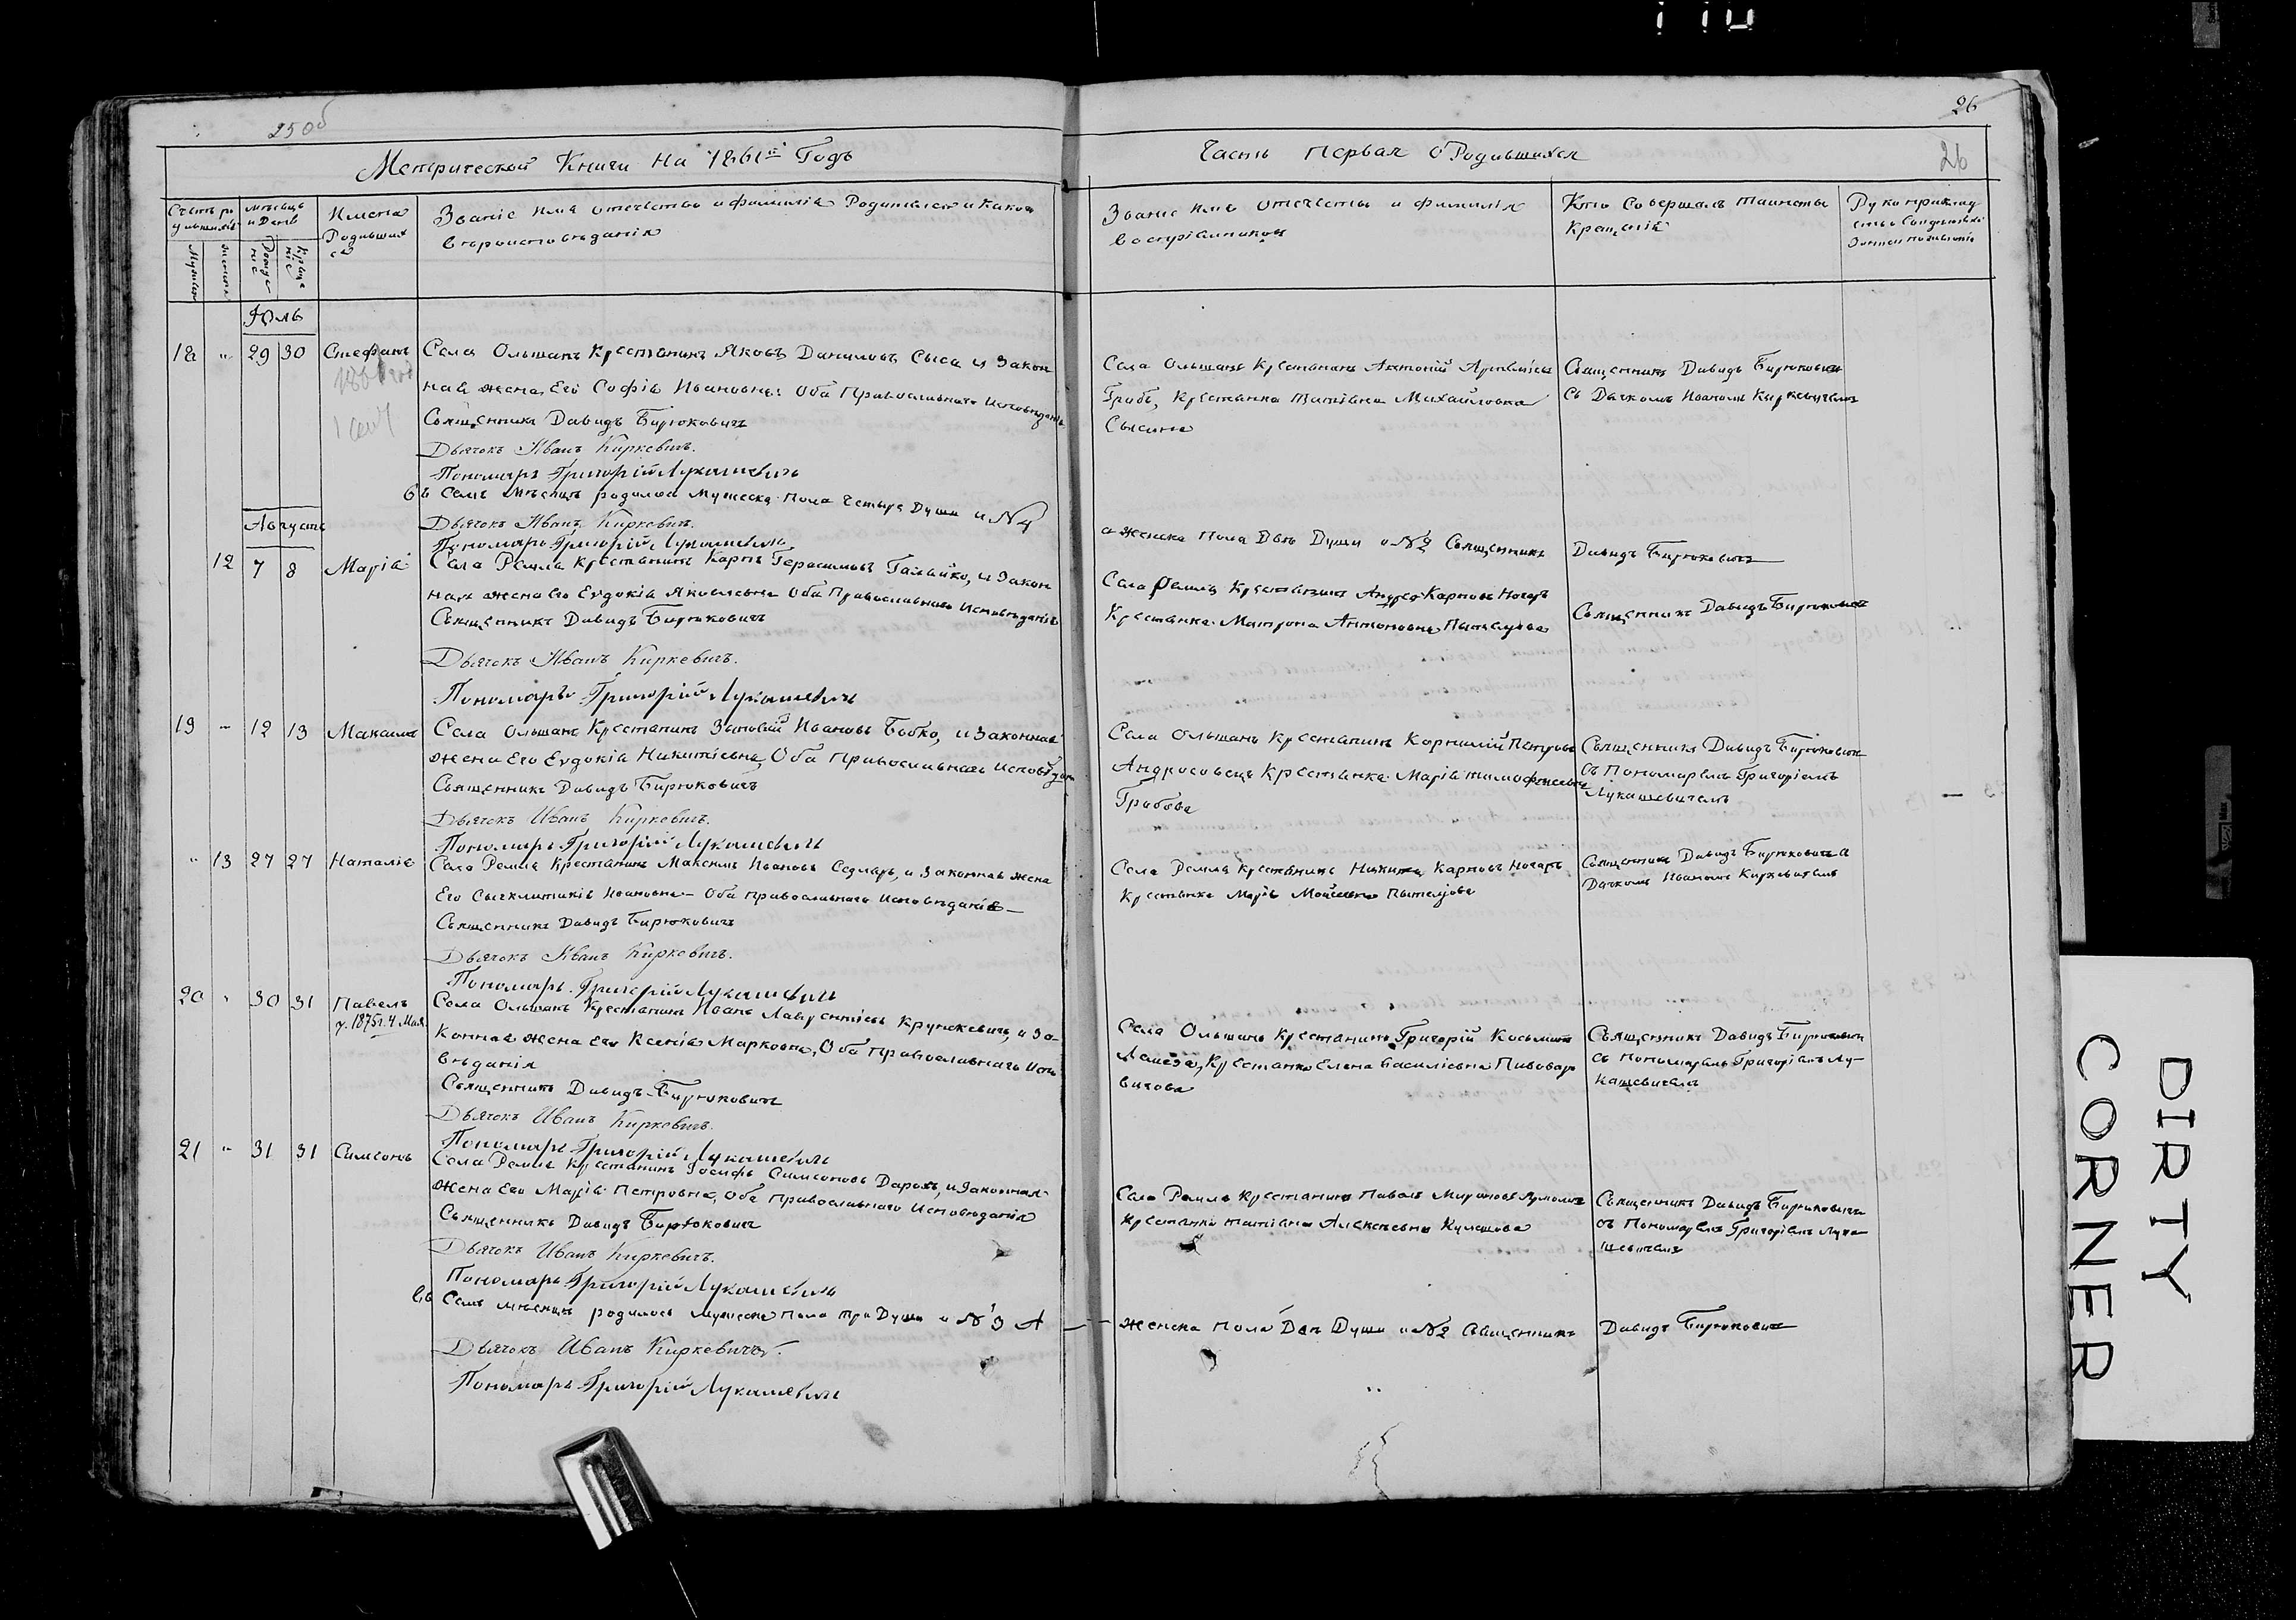 25об
26
Метрической Книги На 1861й Годъ
Часть Первая о Родившихся
26
Счетъ ро
дившихся
Мѣсяцъ
и День
Имена
Родивших
ся
Званіе Имя отечество и фамилія Родителей и Какого
вѣроисповѣданія
Званіе Имя Отечество и фамилія
воспріемниковъ
Кто Совершалъ таинство
Крещенія
Рукоприклад
Мужеска
Женска
Рожде
ніе
Креще
ніе
Юль
18 " 29 30 Стефанъ
Села Ольшанъ Крестянинъ Яковъ Даниловъ Сыса и Закон
ная жена Его Софія Ивановна: Оба Православнаго Исповѣданія
Священникъ Давидъ Бирюковичъ
Дьячокъ Иванъ Киркевичъ.
Пономарь Григорій Лукашевичъ
Села Ольшанъ Крестянинъ Антоній
Грабъ, Крестянка Татіана Михайловна
Сысина
Священникъ Давидъ Бирюковичъ
Съ Дячкомъ Иваномъ Киркевичемъ
въ Семъ Мѣсяцѣ родилося Мужеска Пола Четыре Души и №4
Дьячокъ Иванъ Киркевичъ.
Пономарь Григорій Лукашевичъ
а женска Пола Двѣ Души и №2 Священникъ
Давидъ Бирюковичъ
Августъ
12 7 8 Марія
Села Ремля Крестянинъ Карпъ Герасимовъ Галайко, и Закон
ная жена Его Евдокія Яковлевна Оба Православнаго Исповѣданія
Священникъ Давидъ Бирюковичъ
Дьячокъ Иванъ Киркевичъ.
Пономарь Григорій Лукашевичъ
Села Ремля Крестянинъ Андрей Карповъ Ногаръ
Крестянка Матрона Антоновна
Священникъ Давидъ Бирюковичъ
19 - 12 13 Максимъ
Села Ольшанъ Крестянинъ Зиновій Ивановъ Бобко, и Законная
жена Его Евдокія Никитіевна, Оба Православнаго Исповѣдан
Священникъ Давидъ Бирюковичъ
Дьячокъ Иванъ Киркевичъ.
Пономарь Григорій Лукашевичъ
Села Ольшанъ Крестянинъ Корнилій Петровъ
Андросовецъ Крестянка Марія Тимофеевна
Грабова
Священникъ Давидъ Бирюковичъ
съ Пономаремъ Григоріемъ
Лукашевичемъ
" 13 27 27 Наталія
Села Ремля Крестянинъ Максимъ Ивановъ Седларъ, и Законная жена
Его Сигклитикія Ивановна - Оба Православнаго Исповѣданія -
Священникъ Давидъ Бирюковичъ
Дьячокъ Иванъ Киркевичъ.
Пономарь Григорій Лукашевичъ
Села Ремля Крестянинъ Никита Карповъ Ногаръ
Крестянка Марія
Священникъ Давидъ Бирюковичъ
Дячкомъ Иваномъ Киркевичемъ
20 " 30 31 Павелъ
у. 1875 г. 4 Мая.
Села Ольшанъ Крестянинъ Иванъ Лаврентіевъ Крупкевичъ, и За-
конная жена Его Ксенія Марковна, Оба Православнаго Испо
вѣданія
Священникъ Давидъ Бирюковичъ
Дьячокъ Иванъ Киркевичъ.
Пономарь Григорій Лукашевичъ
Села Ольшанъ Крестянинъ Григорій Косьминъ
Крестянка Елена Василіевна Пивовар
чикова
Священникъ Давидъ Бирюковичъ
съ Пономаремъ Григоріемъ Лу-
кашевичемъ
21 " 31 31 Симеонъ
Села Ремля Крестянинъ Іосифъ Симеоновъ Дарохъ, и Законная
жена Его Марія Петровна, Оба Православнаго Исповѣданія
Священникъ Давидъ Бирюковичъ
Дьячокъ Иванъ Киркевичъ.
Пономарь Григорій Лукашевичъ
Села Ремля Крестянинъ Павелъ Мироновъ
Крестянка Татіана Алексѣевна Кулешова
Священникъ Давидъ Бирюковичъ
съ Пономаремъ Григоріемъ Лука
шевичемъ
въ Семъ Мѣсяцѣ родилось Мужеска Пола Три Души и №3 А
Дьячокъ Иванъ Киркевичъ.
Пономарь Григорій Лукашевичъ
женска Пола Двѣ Души и №2 Священникъ
Давидъ Бирюковичъ
DIRTY
CORNER